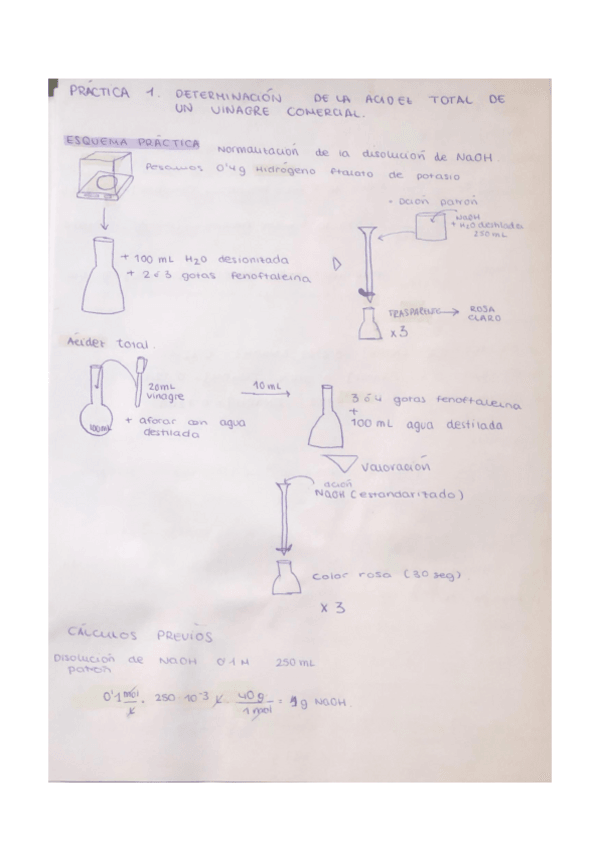 PRÁCTICA 1. DETERMINACIÓN DE LA ACIDEZ TOTAL DE
UN VINAGRE COMERCIAL.
ESQUEMA PRÁCTICA Normalización de la disolución de NaOH.
Pesamos 0'4g Hidrógeno ftalato de potasio
+ 100 mL H2O desionizada
+ 2 ó 3 gotas fenoftaleina
· Dción patrón
NaOH
+ H2O destilada
250 mL
TRASPARENTE → ROSA
CLARO
x 3
Acidez total.
100mL
20mL
vinagre
+ aforar con agua
destilada
10 mL
3 ó 4 gotas fenoftaleina
+
100 mL agua destilada
Valoración
dción
NaOH (estandarizado)
Color rosa (30 seg)
x 3
CÁLCULOS PREVIOS
Disolución de NaOH 0'1 M 250 mL
patrón
0'1 mol/L · 250·10^-3 L · 40 g/1 mol = 1g NaOH.